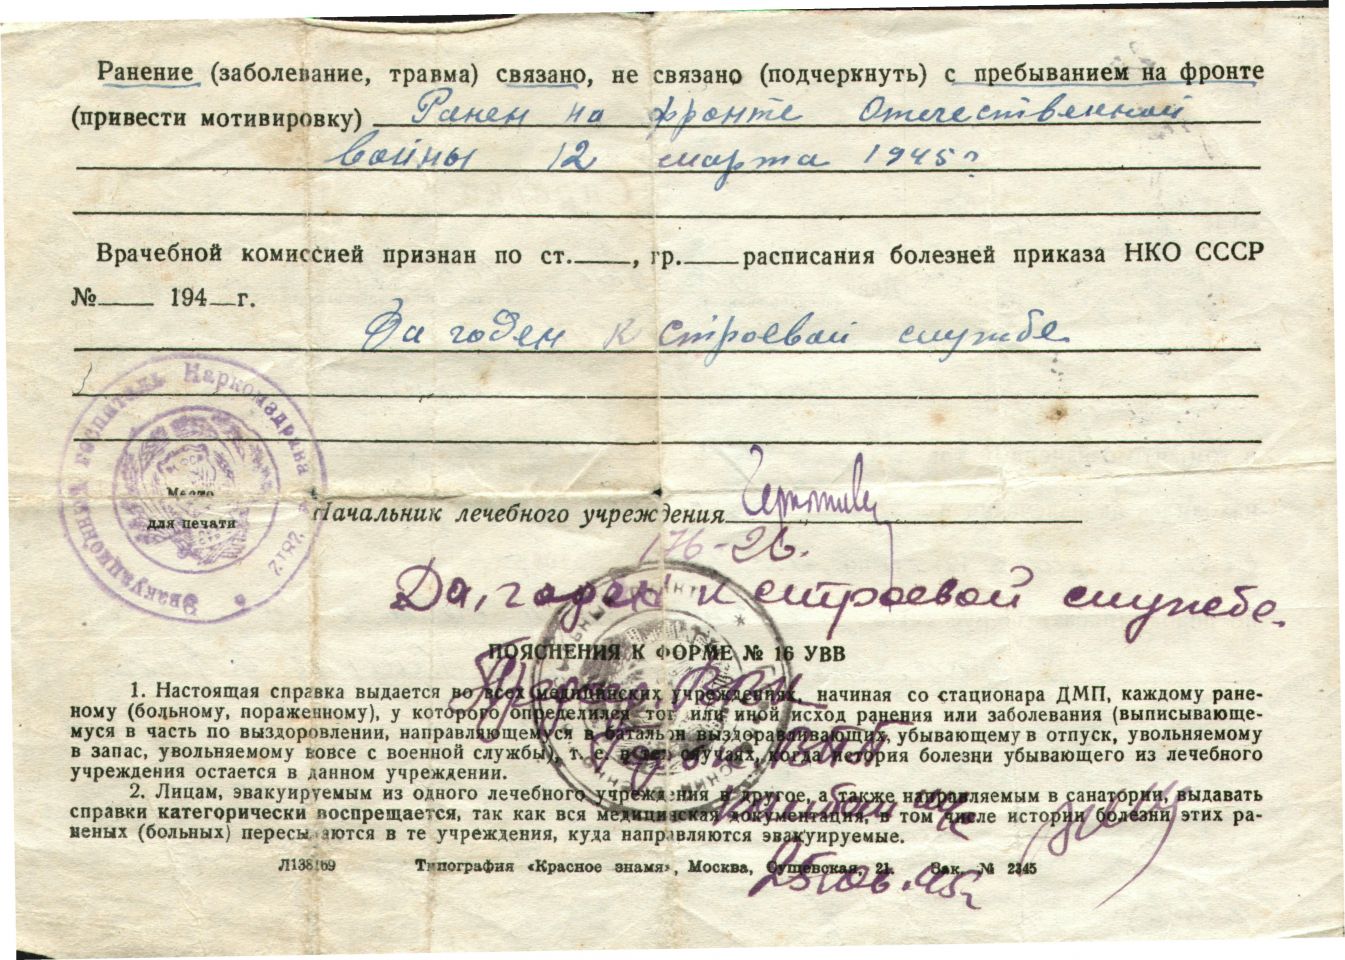 Ранение (заболевание, травма) связано, не связано (подчеркнуть) с пребыванием на фронте
(привести мотивировку) Ранен на фронте Отечественной
войны 12 марта 1945г
Врачебной комиссией признан по ст.____, гр.____ расписания болезней приказа НКО СССР
№____ 194__г.
Да годен к строевой службе
Эвакуационный госпиталь Наркомздрава
Место
для печати
Начальник лечебного учреждения
Да, годен к строевой службе.
ПОЯСНЕНИЯ К ФОРМЕ № 16 УВВ
1. Настоящая справка выдается во всех медицинских учреждениях, начиная со стационара ДМП, каждому ране-
ному (больному, пораженному), у которого определился тот или иной исход ранения или заболевания (выписывающе-
муся в часть по выздоровлении, направляющемуся в батальон выздоравливающих, убывающему в отпуск, увольняемому
в запас, увольняемому вовсе с военной службы), т. е. в тех случаях, когда история болезни убывающего из лечебного
учреждения остается в данном учреждении.
2. Лицам, эвакуируемым из одного лечебного учреждения в другое, а также направляемым в санатории, выдавать
справки категорически воспрещается, так как вся медицинская документация, в том числе истории болезни этих ра-
неных (больных) пересылаются в те учреждения, куда направляются эвакуируемые.
Типография «Красное знамя», Москва, Сущевская, 21. Зак. № 2345